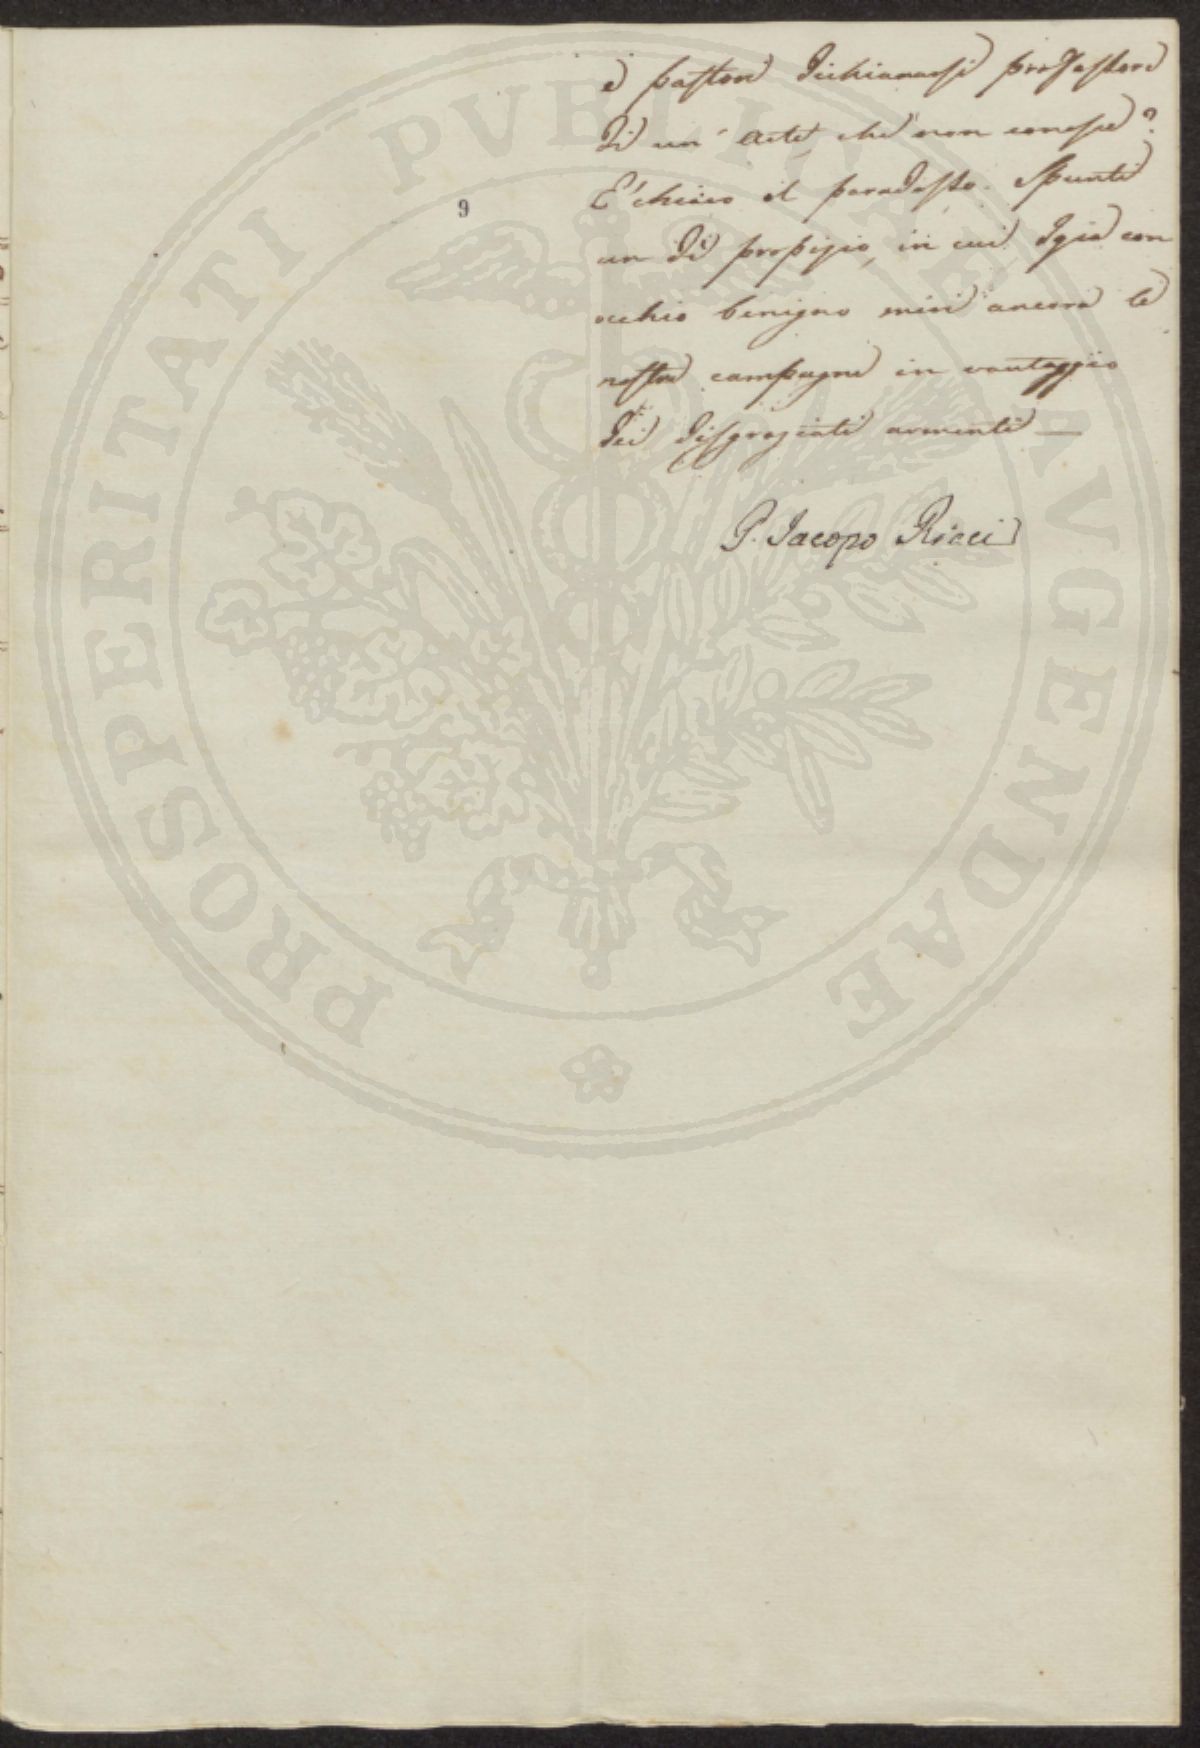 e pastori dichiararsi professore
di un' arte, che non conosce?
E' chiaro il paradosso. Spunti
un dì propizio, in cui Igia con
occhio benigno miri ancora le
nostre campagne in vantaggio
dei disgraziati armenti —
P. Jacopo Ricci
9
PROSPERITATI PVBLICAE AVGENDAE